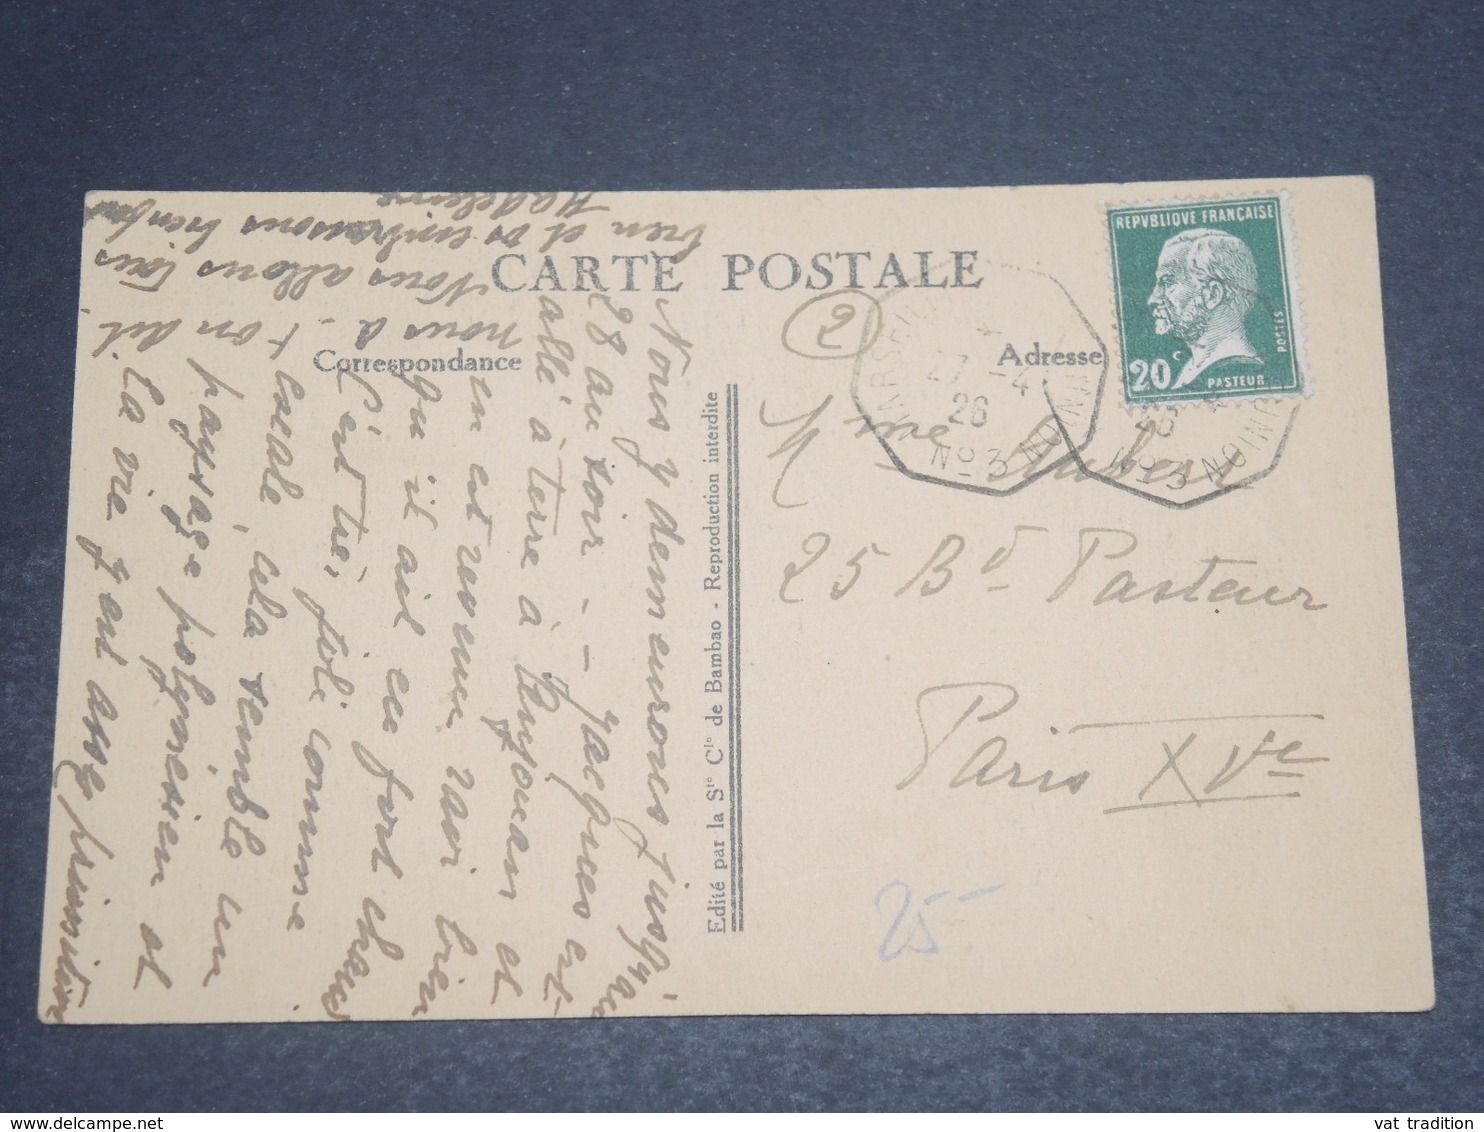 CARTE POSTALE
Correspondance
Adresse
REPVBLIQVE FRANÇAISE
POSTES
20c
PASTEUR
27 -4
26
No 3
No 3
2
Mme
25 Bd Pasteur
Paris XVe
25-
Edité par la Sté Cle de Bambao - Reproduction interdite
Nous y demeurons jusqu'au
28 au soir - - Jacques est
allé à terre à Anjouan et
en est revenu ravi bien
qu'il ait eu fort chaud
C'est très joli comme
escale, cela semble un
paysage polynésien et
la vie y est assez primitive
nous a-t-on dit.
Nous allons tous
bien et vs embrassons bien fort
Madeleine
vat tradition